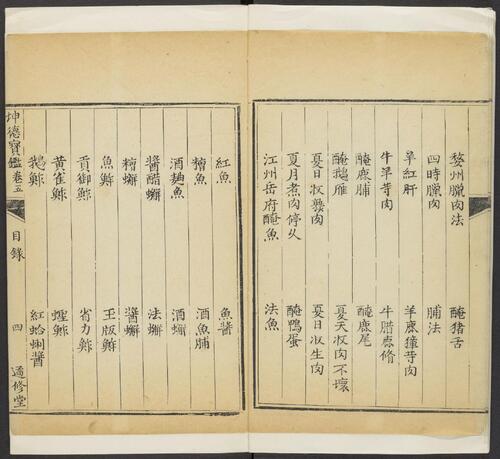 婺州臘肉法 醃猪舌
四時臘肉 脯法
羊紅肝 羊鹿獐等肉
牛羊等肉 牛腊鹿脩
醃鹿脯 醃鹿尾
醃鵝雁 夏天收肉不壞
夏日收𤎅肉 夏日收生肉
夏月煮肉停久 醃鴨蛋
江州岳府醃魚 法魚
紅魚 魚醬
糟魚 酒魚脯
酒麯魚 酒蠏
醬醋蠏 法蠏
糟蠏 醬蠏
魚鮓 玉版鮓
貢御鮓 省力鮓
黄雀鮓 蟶鮓
鵝鮓 紅蛤蜊醬
坤德寶鑑卷五 目錄 四 適修堂